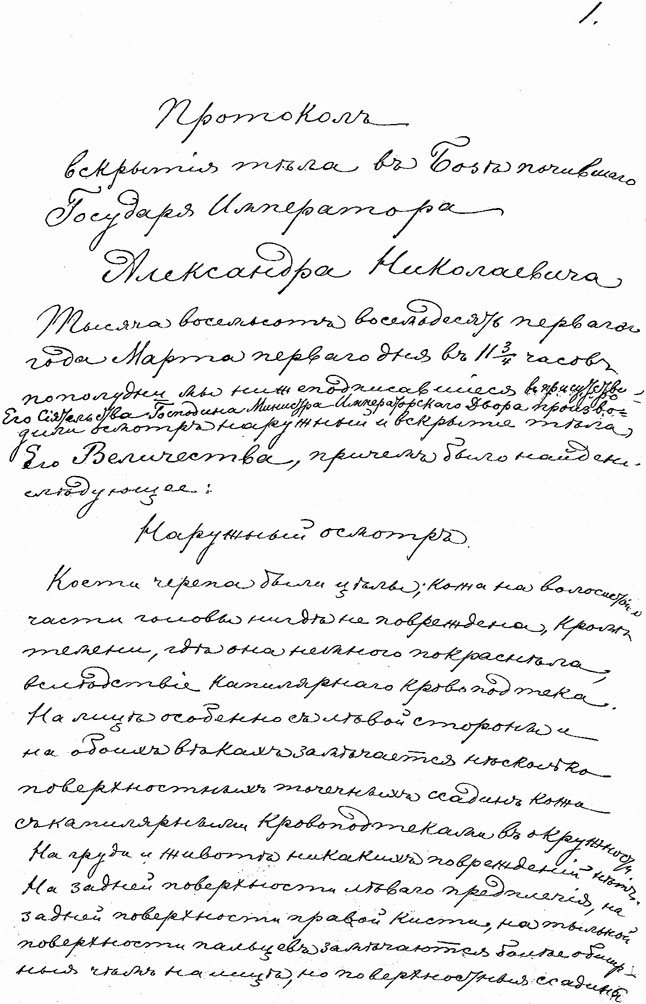 1.
Протоколъ
вскрытія тѣла въ Бозѣ почившаго
Государя Императора
Александра Николаевича
Тысяча восемьсотъ восемьдесятъ перваго
года Марта перваго дня въ 11 3/4 часовъ
пополудни мы нижеподписавшіеся въ присутстві-
Его Сіятельства Господина Министра Императорскаго Двора произво=
дили осмотръ наружный и вскрытіе тѣла
Его Величества, причемъ было найдено
слѣдующее:
Наружный осмотръ.
Кости черепа были цѣлы; кожа на волосистой
части головы нигдѣ не повреждена, кромѣ
темени, гдѣ она немного покраснѣла,
вслѣдствіе капилярнаго кровоподтека.
На лицѣ особенно съ лѣвой стороны и
на обоихъ вѣкахъ замѣчается нѣсколько
поверхностныхъ точечныхъ ссадинъ кожи
съ капилярными кровоподтеками въ окружности.
На груди и животѣ никакихъ поврежденій нѣтъ.
На задней поверхности лѣваго предплечія, на
задней поверхности правой кисти, на тыльной
поверхности пальцевъ замѣчаются болѣе обшир-
ныя чѣмъ на лицѣ, но поверхностныя ссадины